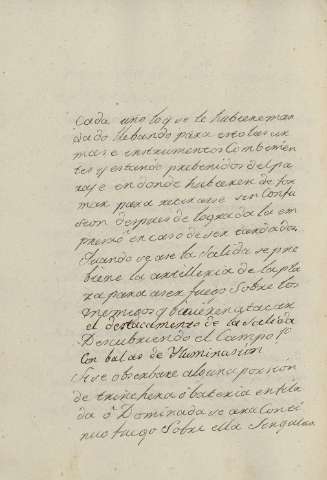 Cada uno lo q se le hubiere man
dado llebando para esto las ar
mas e instrumentos Combenien
tes y estando prebenidos del pa
raje en donde hubieren de for
mar para retirarse sin Confu
sion despues de lograda la em
presa o en caso de ser cargados
Quando se ase la Salida se pre
biene la artilleria de la pla
za para aser fuego Sobre los
enemigos q quieren atacar
el destacamento de la Salida
Descubriendo el Campo
Con balas de Yluminasion
Si se obserbare alguna porsion
de trinchera o bateria enfila
da o Dominada se ara Conti
nuo fuego Sobre ella